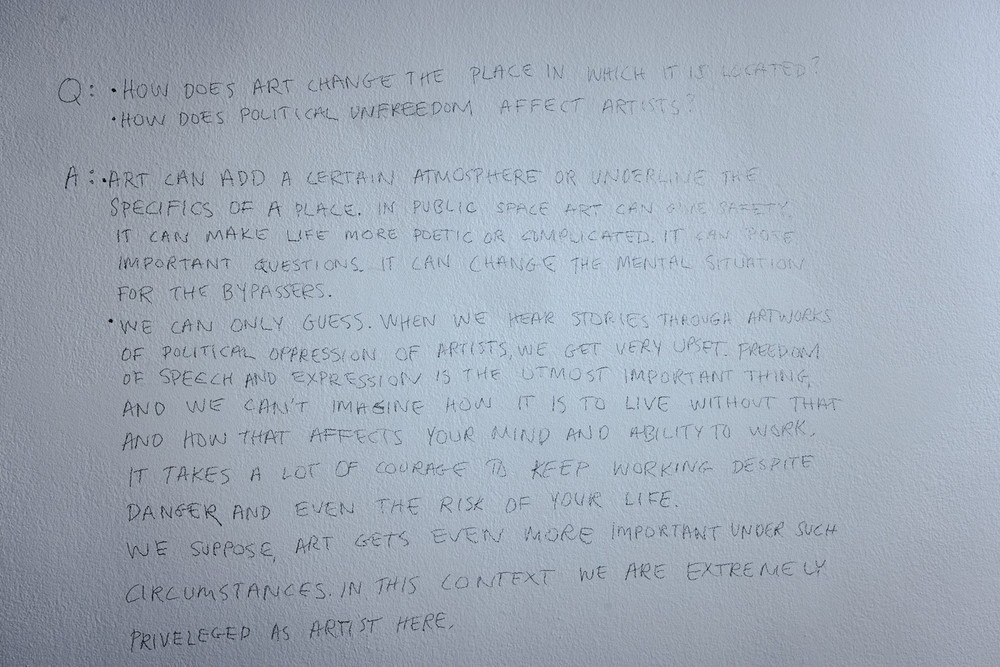 Q: • HOW DOES ART CHANGE THE PLACE IN WHICH IT IS LOCATED?
• HOW DOES POLITICAL UNFREEDOM AFFECT ARTISTS?
A: • ART CAN ADD A CERTAIN ATMOSPHERE OR UNDERLINE THE
SPECIFICS OF A PLACE. IN PUBLIC SPACE ART CAN GIVE SAFETY.
IT CAN MAKE LIFE MORE POETIC OR COMPLICATED. IT CAN POSE
IMPORTANT QUESTIONS. IT CAN CHANGE THE MENTAL SITUATION
FOR THE BYPASSERS.
• WE CAN ONLY GUESS. WHEN WE HEAR STORIES THROUGH ARTWORKS
OF POLITICAL OPPRESSION OF ARTISTS, WE GET VERY UPSET. FREEDOM
OF SPEECH AND EXPRESSION IS THE UTMOST IMPORTANT THING,
AND WE CAN'T IMAGINE HOW IT IS TO LIVE WITHOUT THAT
AND HOW THAT AFFECTS YOUR MIND AND ABILITY TO WORK.
IT TAKES A LOT OF COURAGE TO KEEP WORKING DESPITE
DANGER AND EVEN THE RISK OF YOUR LIFE.
WE SUPPOSE, ART GETS EVEN MORE IMPORTANT UNDER SUCH
CIRCUMSTANCES. IN THIS CONTEXT WE ARE EXTREMELY
PRIVELEGED AS ARTIST HERE.